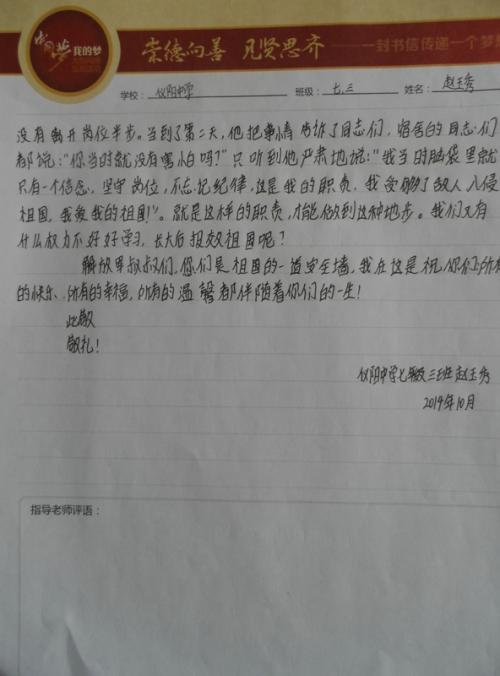 中国梦 我的梦
崇德向善 见贤思齐 一封书信传递一个梦
学校： 仪阳中学 班级： 七.三 姓名： 赵玉秀
没有离开岗位半步。当到了第二天，他把事情告诉了同志们，宿舍的同志们
都说：“你当时就没有害怕吗？”只听到他严肃地说：“我当时脑袋里就
只有一个信念，坚守岗位，不忘记纪律，这是我的职责，我受够了敌人入侵
祖国，我爱我的祖国！”。就是这样的职责，才能做到这种地步。我们又有
什么权力不好好学习，长大后报效祖国呢？
解放军叔叔们，你们是祖国的一道安全墙，我在这是祝你们：所有
的快乐、所有的幸福，所有的温馨都伴随着你们的一生！
此致
敬礼！
仪阳中学七年级三班赵玉秀
2014年10月
指导老师评语：